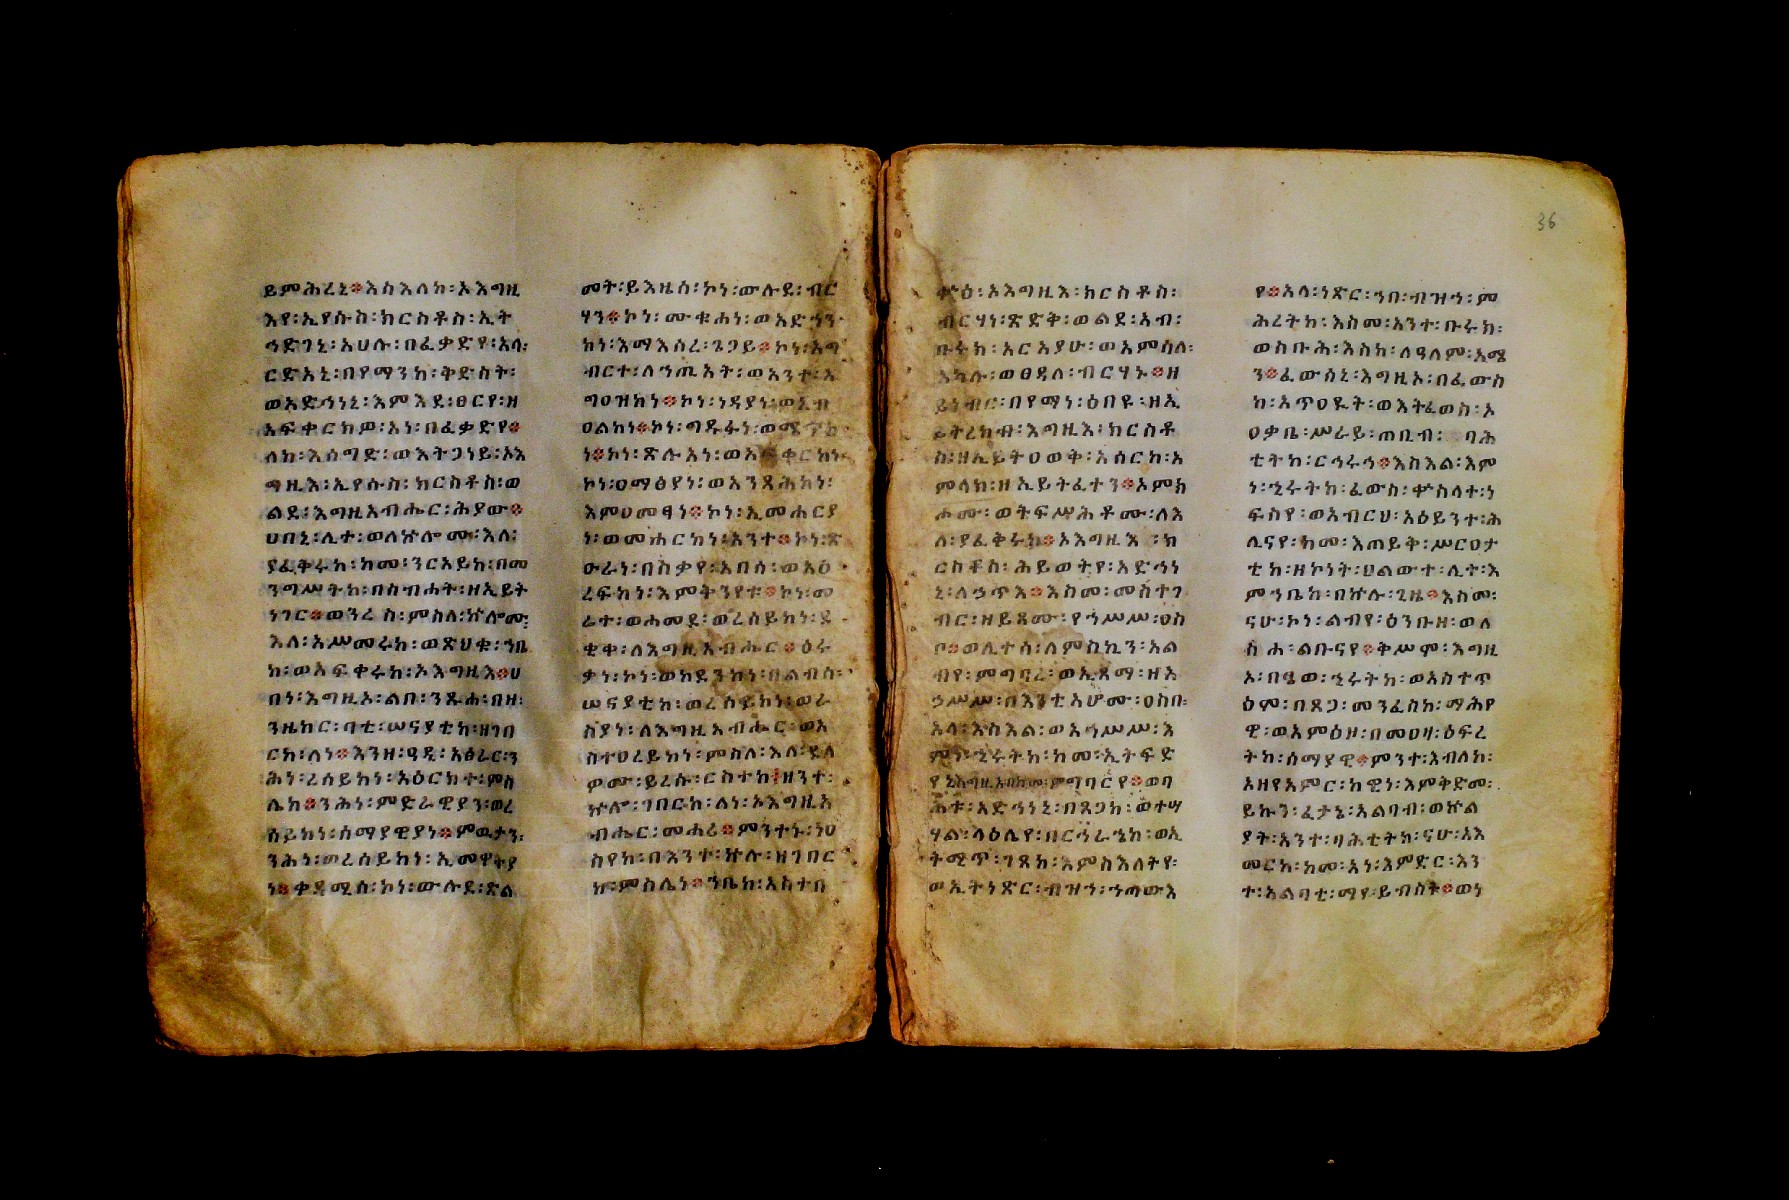 ይምሕረኒ፨እስእለከ፡ኦእግዚ
እየ፡ኢየሱስ፡ክርስቶስ፡ኢት
ኅድገኒ፡አሀሉ፡በፈቃድየ፡አላ፡
ርድአኒ፡በየማንከ፡ቅድስት፡
ወአድኅነኒ፡እምእደ፡ፀርየ፡ዘ
አፍቀርክዎ፡አነ፡በፈቃድየ፨
ለከ፡እሰግድ፡ወእትጋነይ፡ኦእ
ግዚእ፡ኢየሱስ፡ክርስቶስ፡ወ
ልደ፡እግዚአብሔር፡ሕያው፨
ሀበኒ፡ሊተ፡ወለኵሎሙ፡እለ፡
ያፈቅሩከ፡ከመ፡ንርአይከ፡በመ
ንግሥትከ፡በስብሐት፡ዘኢይት
ነገር፨ወንረስ፡ምስለ፡ኵሎሙ፡
እለ፡አሥመሩከ፡ወጽህቁ፡ኀቤ
ከ፡ወአፍቀሩከ፡ኦእግዚእ፨ሀ
በነ፡እግዚኦ፡ልበ፡ንጹሐ፡በዘ፡
ንዜከር፡ባቲ፡ሠናያቲከ፡ዘገበ
ርከ፡ለነ፨እንዘ፡ዓዲ፡አፅራር፡ን
ሕነ፡ረሰይከነ፡አዕርክተ፡ምስ
ሌከ፨ንሕነ፡ምድራዊያን፡ወረ
ሰይከነ፡ሰማያዊያነ፨ምዉታን፡
ንሕነ፡ወረሰይከነ፡ኢመዋትያ
ነ፨ቀዳሚሰ፡ኮነ፡ውሉደ፡ጽል
መት፡ይእዜሰ፡ኮነ፡ውሉደ፡ብር
ሃን፨ኮነ፡ሙቁሐነ፡ወአድኀን
ከነ፡እማእሰረ፡ጌጋይ፨ኮነ፡አግ
ብርተ፡ለኀጢአት፡ወአንተ፡አ
ግዐዝከነ፨ኮነ፡ነዳያነ፡ወአብ
ዐልከነ፨ኮነ፡ግዱፋነ፡
ነ፨ኮነ፡ጽሉአነ፡ወአፍቀርከነ
ኮነ፡ዐማፅያነ፡ወአንጻሕከነ፡
እምዐመፃነ፨ኮነ፡ኢመሐርያ
ነ፡ወመሐርከነ፡አንተ፨ኮነ፡ጽ
ዑራነ፡በስቃየ፡አበሳ፡ወአዕ
ረፍከነ፡እምትንየቱ፨ኮነ፡መ
ሬተ፡ወሐመደ፡ወረሰይከነ፡ደ
ቂቀ፡ለእግዚአብሔር፨ዕሩ
ቃነ፡ኮነ፡ወከደንከነ፡በልብሰ፡
ሠናያቲከ፡ወረሰይከነ፡ወራ
ስያነ፡ለእግዚአብሔር፡ወአ
ስተዐረይከነ፡ምስለ፡እለ፡ደለ
ዎሙ፡ይረሱ፡ርስተከ፡ዘንተ፡
ኵሎ፡ገበርከ፡ለነ፡ኦእግዚአ
ብሔር፡መሐሪ፨ምንተኑ፡ነዐ
ስየከ፡በእንተ፡ኵሉ፡ዘገበር
ከ፡ምስሌነ፨ኀቤከ፡አስተበ
ቍዕ፡ኦእግዚእ፡ክርስቶስ፡
ብርሃነ፡ጽድቅ፡ወልደ፡አብ፡
ቡሩክ፡አርአያሁ፡ወአምሳለ፡
አካሉ፡ወፀዳለ፡ብርሃኑ፨ዘ
ይነብር፡በየማነ፡ዕበዩ፡ዘኢ
ይትረከብ፡እግዚእ፡ክርስቶ
ስ፡ዘኢይትዐወቅ፡አሰርከ፡አ
ምላክ፡ዘኢይትፈተን፨ኦምክ
ሖሙ፡ወትፍሥሕቶሙ፡ለእ
ለ፡ያፈቅሩከ፨ኦእግዚእ፡ክ
ርስቶስ፡ሕይወትየ፡አድኅነ
ኒ፡ለኃጥእ፨እስመ፡መስተገ
ብር፡ዘይጸሙ፡የኀሥሥ፡ዐስ
ቦ፨ወሊተሰ፡ለምስኪን፡አል
ብየ፡ምግባረ፡ወኢጻማ፡ዘእ
ኃሥሥ፡በእንቲአሆሙ፡ዐስበ፡
አላ፡እስእል፡ወአኀሥሥ፡እ
ምነ፡ኂሩትከ፡ከመ፡ኢትፍድ
የኒእግዚአበከመ፡ምግባርየ፨ወባ
ሕቱ፡አድኅነኒ፡በጸጋከ፡ወተሣ
ሃል፡ላዕሌየ፡በርኅራኄከ፡ወኢ
ትሚጥ፡ገጸከ፡እምስእለትየ፡
ወኢትነጽር፡ብዝኀ፡ኀጣውእ
የ፨አላ፡ነጽር፡ኀበ፡ብዝኀ፡ም
ሕረትከ፡እስመ፡አንተ፡ቡሩክ፡
ወስቡሕ፡እስከ፡ለዓለም፡አሜ
ን፨ፈውሰኒ፡እግዚኦ፡በፈውስ
ከ፡አጥዐዪት፡ወእትፈወስ፡ኦ
ዐቃቤ፡ሥራይ፡ጠቢብ፡ባሕ
ቲትከ፡ርኅሩኅ፨እስእል፡እም
ነ፡ኂሩትከ፡ፈውስ፡ቍስላተ፡ነ
ፍስየ፡ወአብርህ፡አዕይንተ፡ሕ
ሊናየ፡ከመ፡እጠይቅ፡ሥርዐታ
ቲከ፡ዘኮነት፡ሀልውተ፡ሊተ፡እ
ምኀቤከ፡በኵሉ፡ጊዜ፨እስመ፡
ናሁ፡ኮነ፡ልብየ፡ዕንቡዘ፡ወለ
ስሐ፡ልቡናየ፨ቅሥም፡እግዚ
ኦ፡በፄወ፡ኂሩትከ፡ወአስተጥ
ዕም፡በጸጋ፡መንፈስከ፡ማሕየ
ዊ፡ወአምዕዞ፡በመዐዛ፡ዕፍረ
ትከ፡ሰማያዊ፨ምንተ፡እብለከ፡
ኦዘየአምር፡ከዊነ፡እምቅድመ፡
ይኩን፡ፈታኔ፡አልባብ፡ወኵል
ያት፡አንተ፡ባሕቲትከ፡ናሁ፡አእ
መርከ፡ከመ፡አነ፡እምድር፡እን
ተ፡አልባቲ፡ማየ፡ይብስት፨ወነ
36